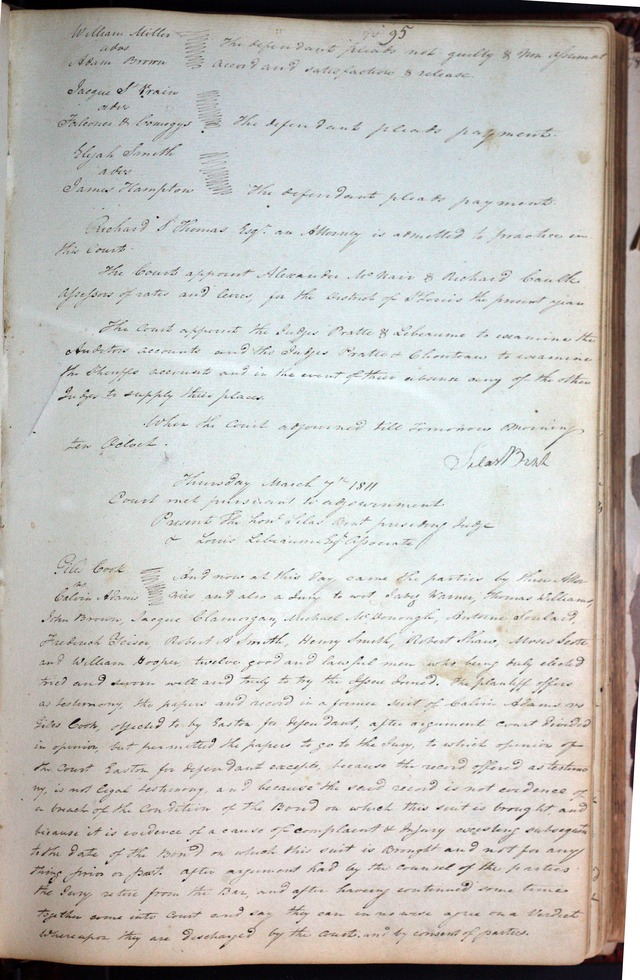 95
William Miller
ads
Adam Brown
The defendant pleads not guilty & Non assumpsit
accord and satisfaction & release
Jacque St Vrain
ads
Falconer & Comegys
The defendant pleads payment.
Elijah Smith
ads
James Hampton
The defendant pleads payment.
Richard S Thomas Esqr. an Attorney is admitted to practice in
this Court.
The Court appoint Alexander McNair & Richard Caulk
Assessors of rates and levies, for the District of St Louis the present year
The Court appoint the Judges Pratte & Lebeaume to examine the
Auditors accounts and the Judges Pratte & Chouteau to examine
the Sheriffs accounts and in the event of their absence any of the other
Judges to supply their places
When the Court adjourned till Tomorrow Morning
ten Oclock.
Silas Bent
Thursday March 7th 1811
Court met pursuant to adjournment
Present The Honl. Silas Bent presiding Judge
& Louis Lebeaume Esqr. Associate
Giles Cook
vs
Calvin Adams
And now at this day came the parties by their Attor
nies and also a Jury to wit, Jabez Warner, Thomas Williams,
John Brown, Jacque Clamorgan, Michael McDonough, Antoine Soulard,
Frederick Robert A Smith, Henry Smith, Robert Shaw, Moses Scott
and William Hooper, twelve good and lawful men who being duly elected
tried and sworn well and truly to try the Issue Joined. The plaintiff offers
as testimony, the papers and record in a former suit of Calvin Adams vs
Giles Cook, objected to by Easton for defendant, after argument Court divided
in opinion but permitted the papers to go to the Jury, to which opinion of
the Court Easton for defendant excepts, because the record offered as testimo
ny, is not legal testimony, and because the said record is not evidence of
a breach of the Condition of the Bond on which this suit is brought, and
because it is evidence of a cause of complaint & Injury existing subsequent
to the date of the Bond on which this suit is Brought and not for any
thing prior or past. after argument had by the counsel of the parties
the Jury retire from the Bar, and after having continued some time
together come into Court and say they can in no wise agree on a Verdict
Whereupon they are discharged by the court, and by consent of parties.